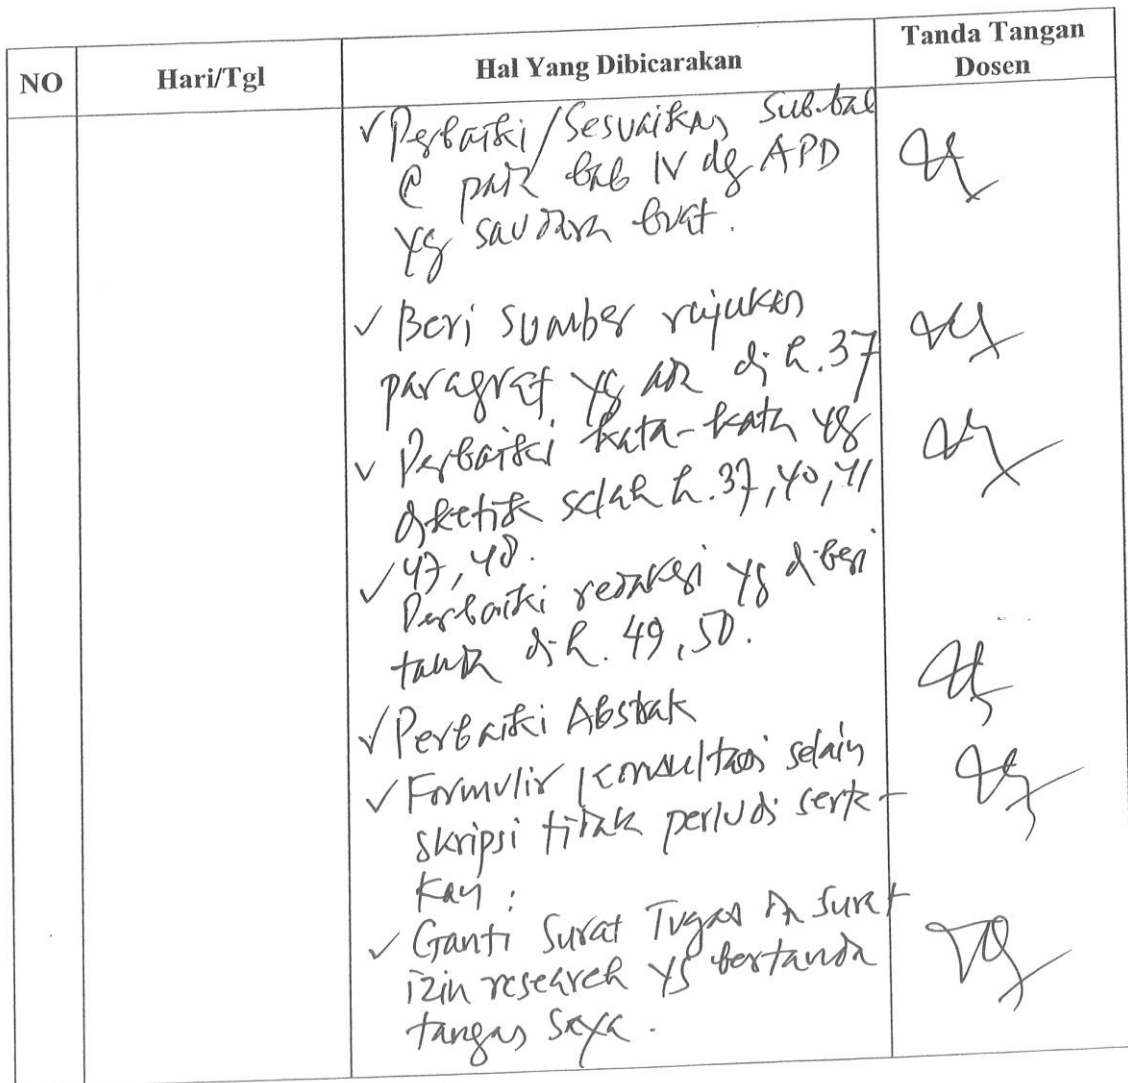 NO
Hari/Tgl
Hal Yang Dibicarakan
Tanda Tangan
Dosen
✓ Perbaiki/Sesuaikan Sub.bab
C pada bab IV dg APD
yg saudara buat.
✓ Beri sumber rujukan
paragraf yg ada di h.37
✓ Perbaiki kata-kata yg
diketik salah h.37, 40, 41
47, 48.
✓ Perbaiki redaksi yg diberi
tanda di h. 49, 50.
✓ Perbaiki Abstrak
✓ Formulir konsultasi selain
skripsi tidak perlu di serta-
kan.
✓ Ganti Surat Tugas dan Surat
izin research yg bertanda
tangan saya.